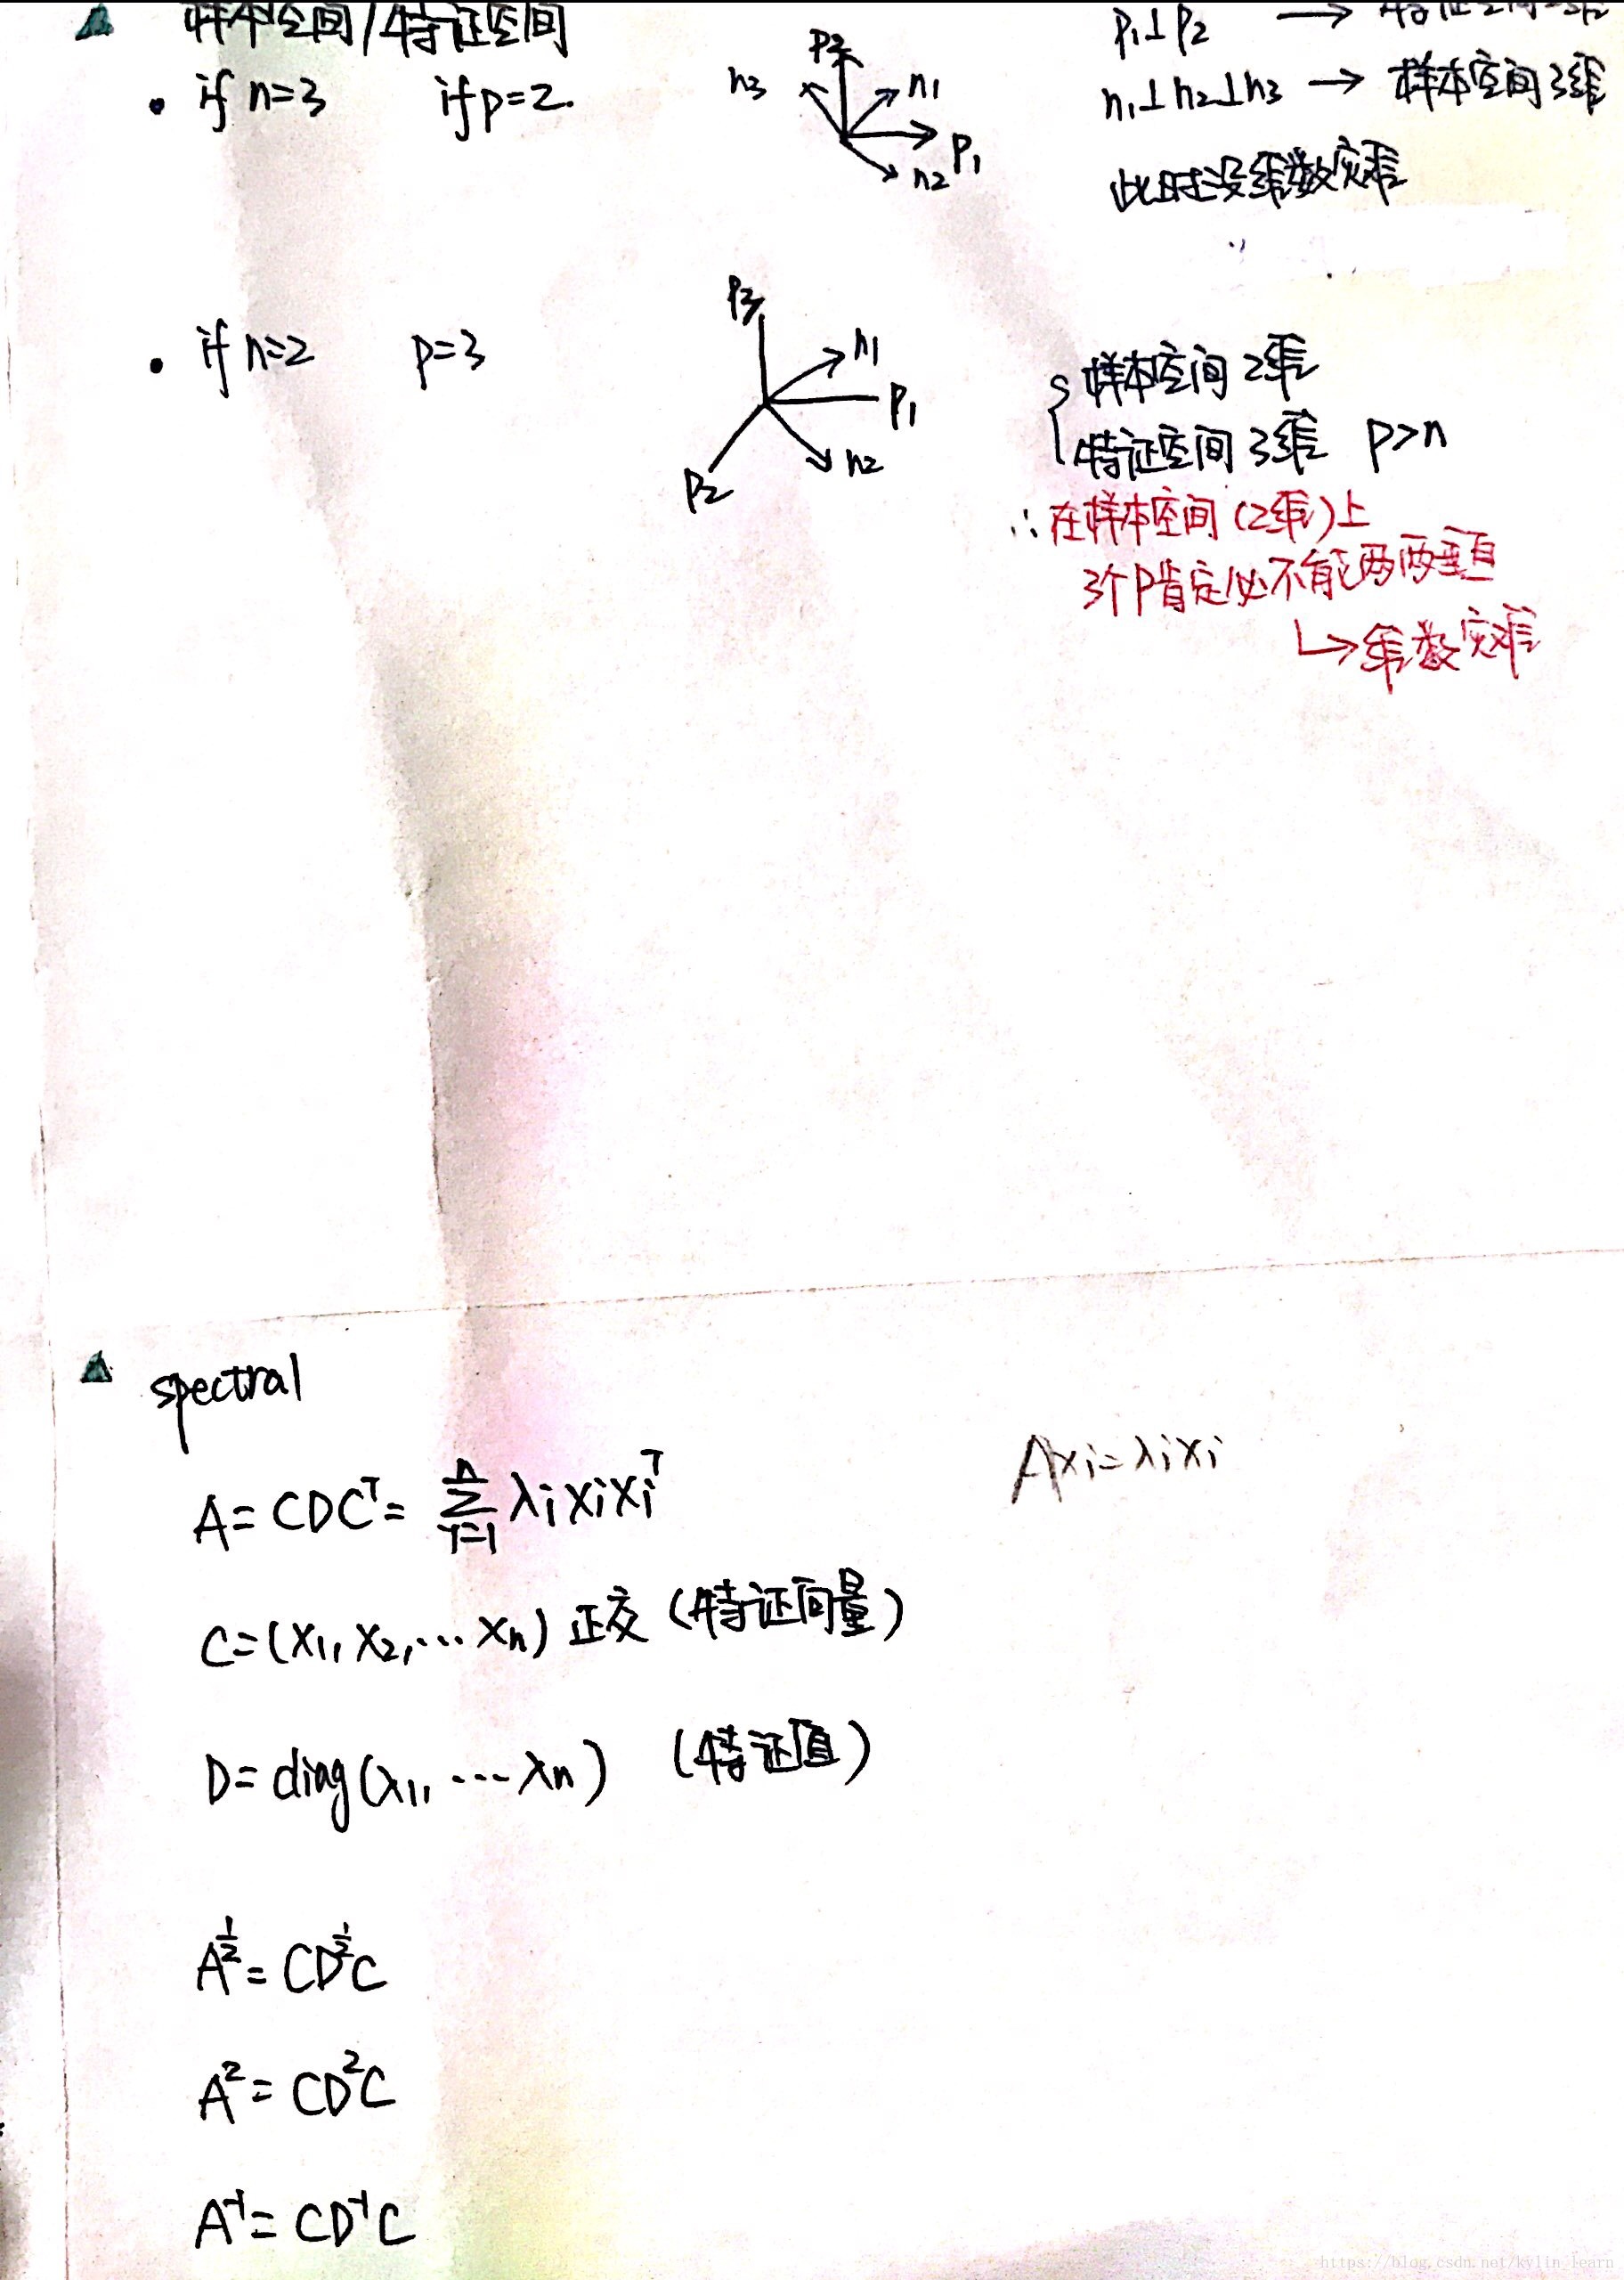 样本空间/特证空间
• if n=3 if p=2.
p2
n3
n1
p1
n2
p1⊥p2 →
n1⊥n2⊥n3 → 样本空间3维
此时没维数灾难
• if n=2 p=3
p3
n1
p1
n2
p2
{ 样本空间 2维
特证空间 3维 p>n
∴ 在样本空间(2维)上
3个p肯定必不能两两垂直
↳ 维数灾难
spectral
A = CDCᵀ = ∑ᵢ₌₁ⁿ λi xi xiᵀ
Axi = λixi
C=(x1, x2, ... xn) 正交 (特证向量)
D= diag(λ1, ... λn) (特证值)
A^½ = CD^½C
A² = CD²C
A⁻¹ = CD⁻¹C
https://blog.csdn.net/kylin_learn